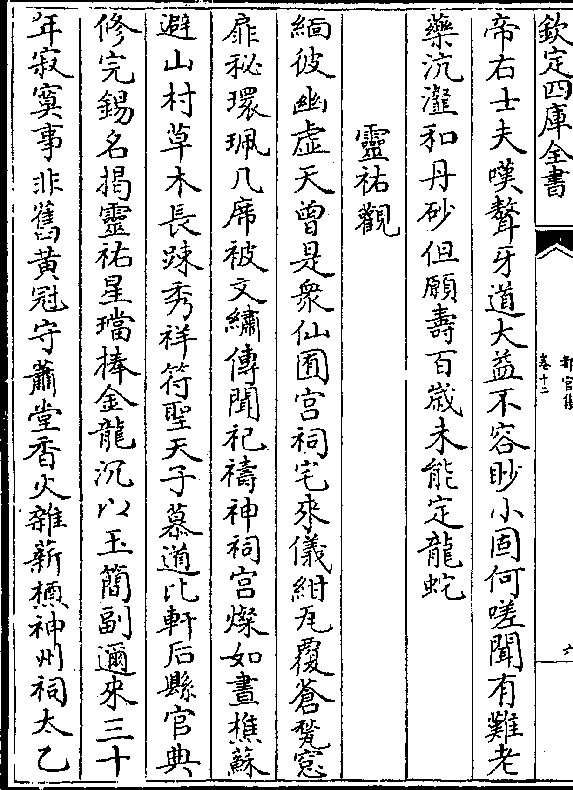 欽定四庫全書
都官集
卷十二
六
帝右士夫嘆聱牙道大益不容眇小固何嗟聞有難老
藥沆瀣和丹砂但願壽百歳未能定龍蛇
靈祐觀
緬彼幽虚天曾是衆仙囿宫祠宅來儀紺瓦覆蒼甃窓
扉祕環珮几席被文繡傳聞祀禱神祠宫燦如晝樵蘇
避山村草木長踈秀祥符聖天子慕道比軒后縣官典
修完錫名揭靈祐星璫捧金龍沉以玉簡副邇來三十
年寂寞事非舊黄冠守蕭堂香火雜薪槱神州祠太乙